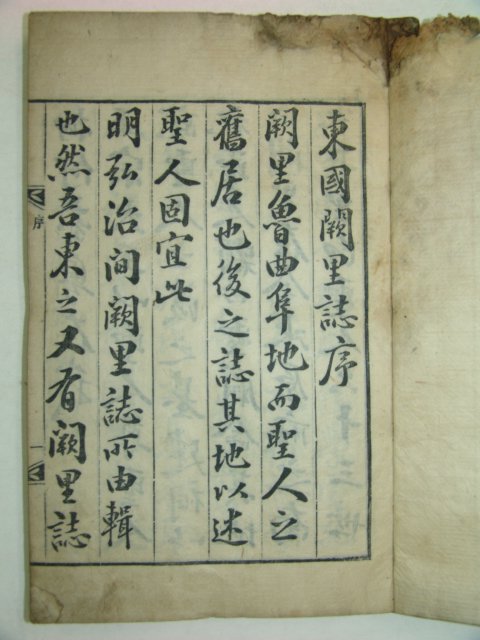 東國闕里誌序
闕里魯曲阜地而聖人之
舊居也後之誌其地以述
聖人固宜此
明弘治间闕里誌所由輯
也然吾東之又有闕里誌
序
一